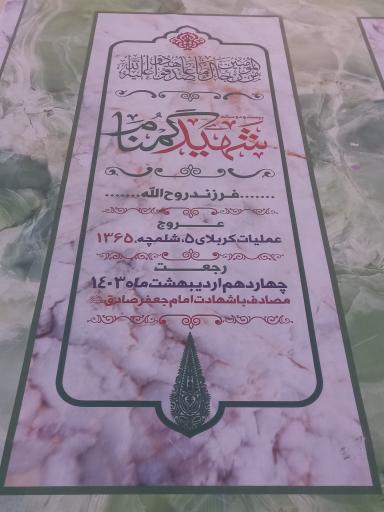 من المؤمنین رجال صدقوا ما عاهدوا الله علیه
شهید گمنام
.......فرزند روح الله.......
عروج
عملیات کربلای ۵، شلمچه، ۱۳۶۵
رجعت
چهاردهم اردیبهشت ماه ۱۴۰۳
مصادف با شهادت امام جعفر صادق